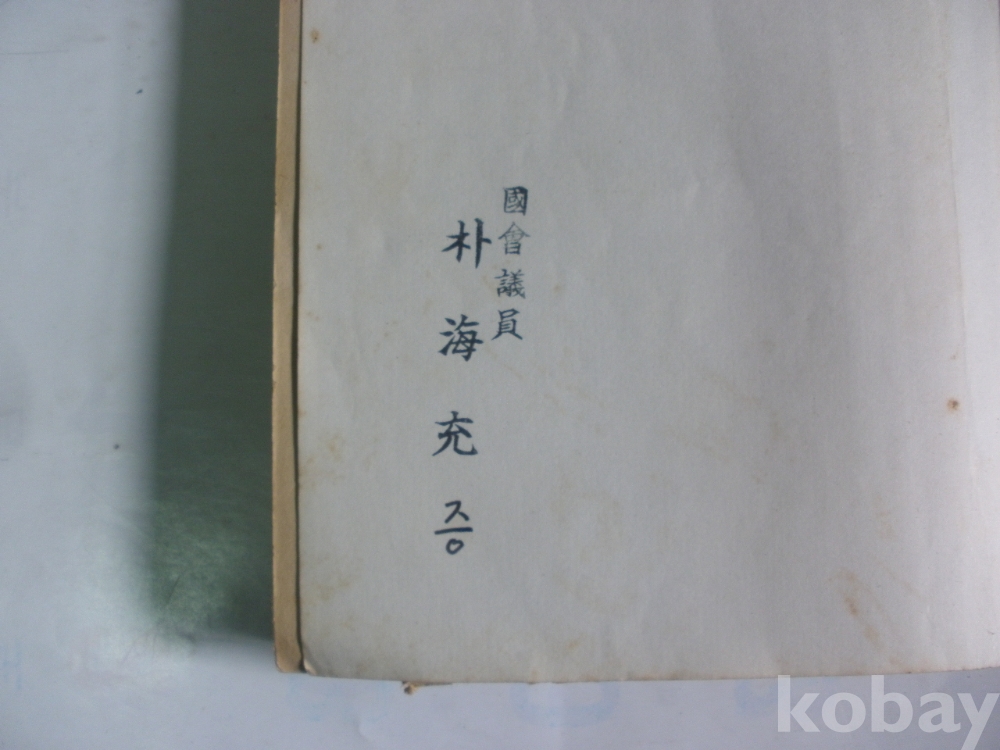 國會議員
朴海充 증
kobay